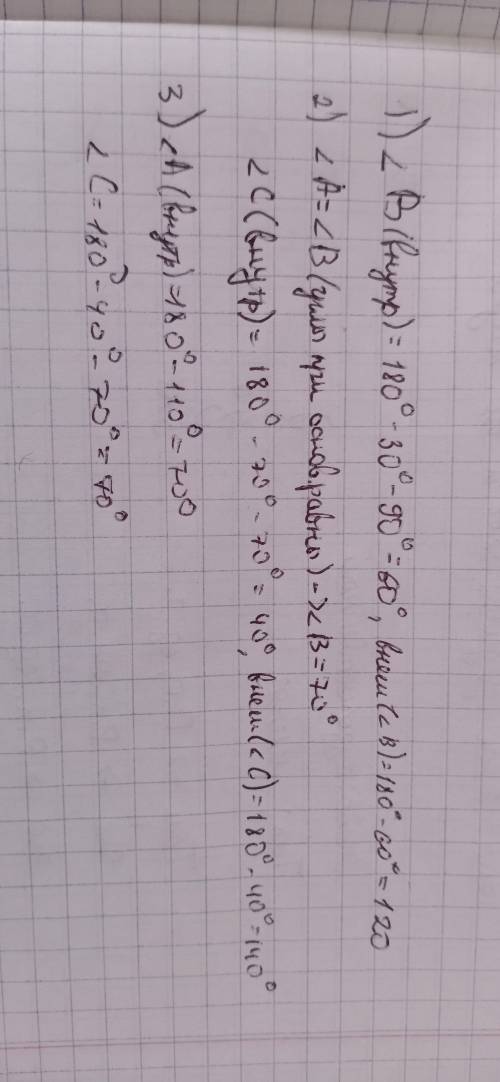 1) < B (внутр) = 180° - 30° - 90° = 60°, внеш (< B) = 180° - 60° = 120
2) < A = < B (углы при основ. равны) -> < B = 70°
< C (внутр) = 180° - 70° - 70° = 40°, внеш (< C) = 180° - 40° = 140°
3) < A (внутр) = 180° - 110° = 70°
< C = 180° - 40° - 70° = 70°